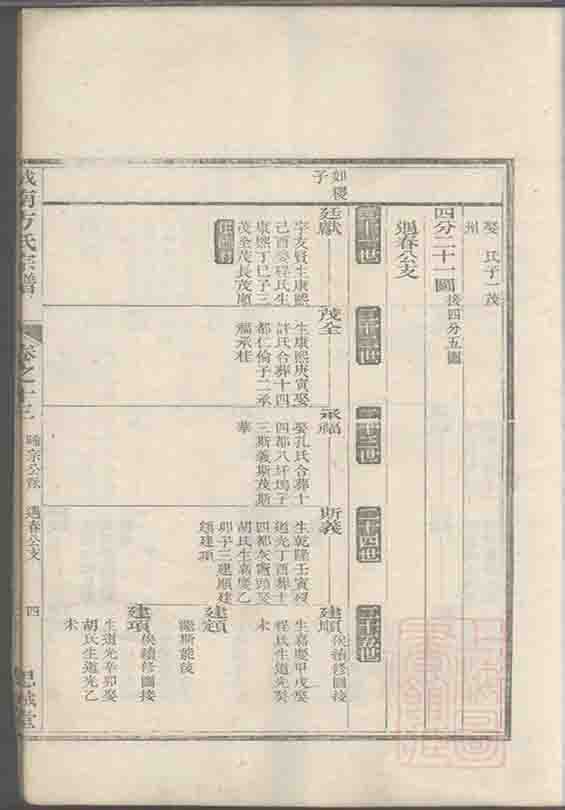 娶 氏子一茂
州
四分二十一圖 後四分五圖
遇春公支
二十二世
二十三世
二十四世
二十五世
如稷
子
廷獻
字友賢生康熙
己酉娶程氏生
康熙丁巳子三
茂全茂長茂順
茂全
生康熙庚寅娶
許氏合葬十四
都仁倫子二承
福承桂
承福
娶孔氏合葬十
四都八圩塢子
三斯義斯茂斯
華
斯義
生乾隆壬寅歿
道光丁酉葬十
四都灰竈頭娶
胡氏生嘉慶乙
卯子三建順建
建項
建順 俟續修圖接
生嘉慶甲戌娶
程氏生道光癸
未
繼斯茂後
建項 俟續修圖接
生道光辛卯娶
胡氏生道光乙
未
城南方氏宗譜
卷之十三
遇春公支
四
思誠堂